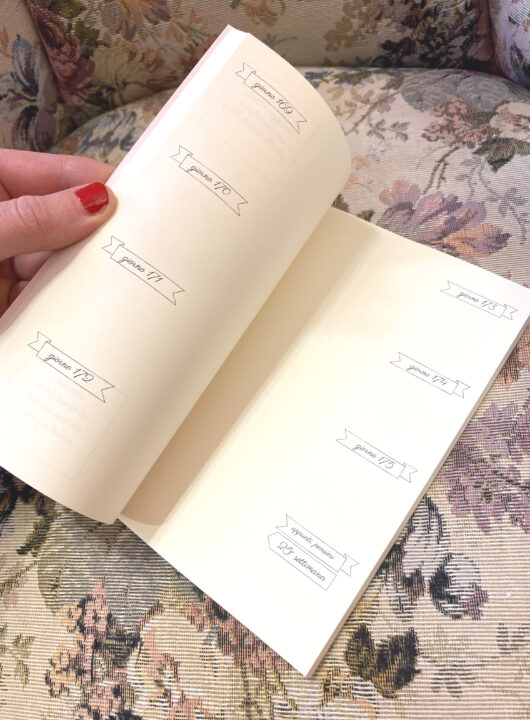 giorno 169
giorno 170
giorno 171
giorno 172
giorno 173
giorno 174
giorno 175
appunti, pensieri
25 settimana